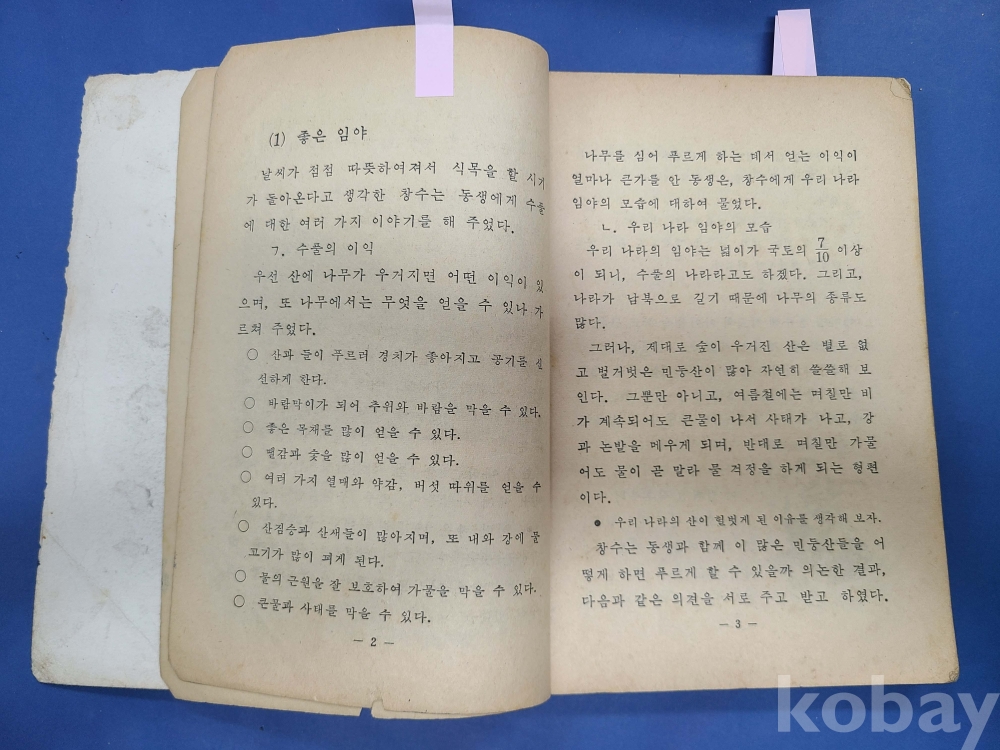 (1) 좋은 임야
날씨가 점점 따뜻하여져서 식목을 할 시기
가 돌아온다고 생각한 창수는 동생에게 수풀
에 대한 여러 가지 이야기를 해 주었다.
ㄱ. 수풀의 이익
우선 산에 나무가 우거지면 어떤 이익이 있
으며, 또 나무에서는 무엇을 얻을 수 있나 가
르쳐 주었다.
○ 산과 들이 푸르러 경치가 좋아지고 공기를 신
선하게 한다.
○ 바람막이가 되어 추위와 바람을 막을 수 있다.
○ 좋은 목재를 많이 얻을 수 있다.
○ 땔감과 숯을 많이 얻을 수 있다.
○ 여러 가지 열매와 약감, 버섯 따위를 얻을 수
있다.
○ 산짐승과 산새들이 많아지며, 또 내와 강에 물
고기가 많이 꾀게 된다.
○ 물의 근원을 잘 보호하여 가물을 막을 수 있다.
○ 큰물과 사태를 막을 수 있다.
— 2 —
나무를 심어 푸르게 하는 데서 얻는 이익이
얼마나 큰가를 안 동생은, 창수에게 우리 나라
임야의 모습에 대하여 물었다.
ㄴ. 우리 나라 임야의 모습
우리 나라의 임야는 넓이가 국토의 7/10 이상
이 되니, 수풀의 나라라고도 하겠다. 그리고,
나라가 남북으로 길기 때문에 나무의 종류도
많다.
그러나, 제대로 숲이 우거진 산은 별로 없
고 벌거벗은 민둥산이 많아 자연히 쓸쓸해 보
인다. 그뿐만 아니고, 여름철에는 며칠만 비
가 계속되어도 큰물이 나서 사태가 나고, 강
과 논밭을 메우게 되며, 반대로 며칠만 가물
어도 물이 곧 말라 물 걱정을 하게 되는 형편
이다.
● 우리 나라의 산이 헐벗게 된 이유를 생각해 보자.
창수는 동생과 함께 이 많은 민둥산들을 어
떻게 하면 푸르게 할 수 있을까 의논한 결과,
다음과 같은 의견을 서로 주고 받고 하였다.
— 3 —
kobay